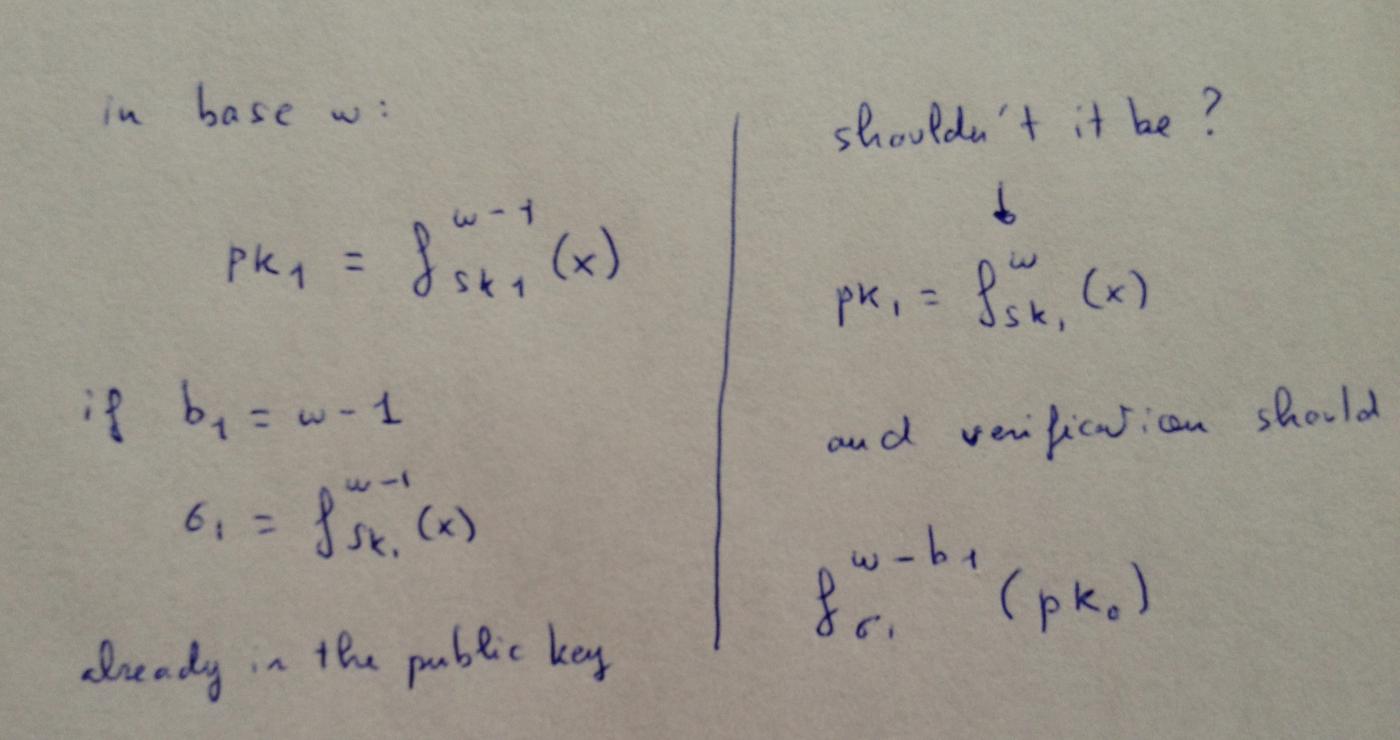 in base w:
pk₁ = f^{w-1}_{sk₁}(x)
if b₁ = w-1
σ₁ = f^{w-1}_{sk₁}(x)
already in the public key
shouldn't it be ?
↓
pk₁ = f^{w}_{sk₁}(x)
and verification should
f^{w-b₁}_{σ₁}(pk₀)